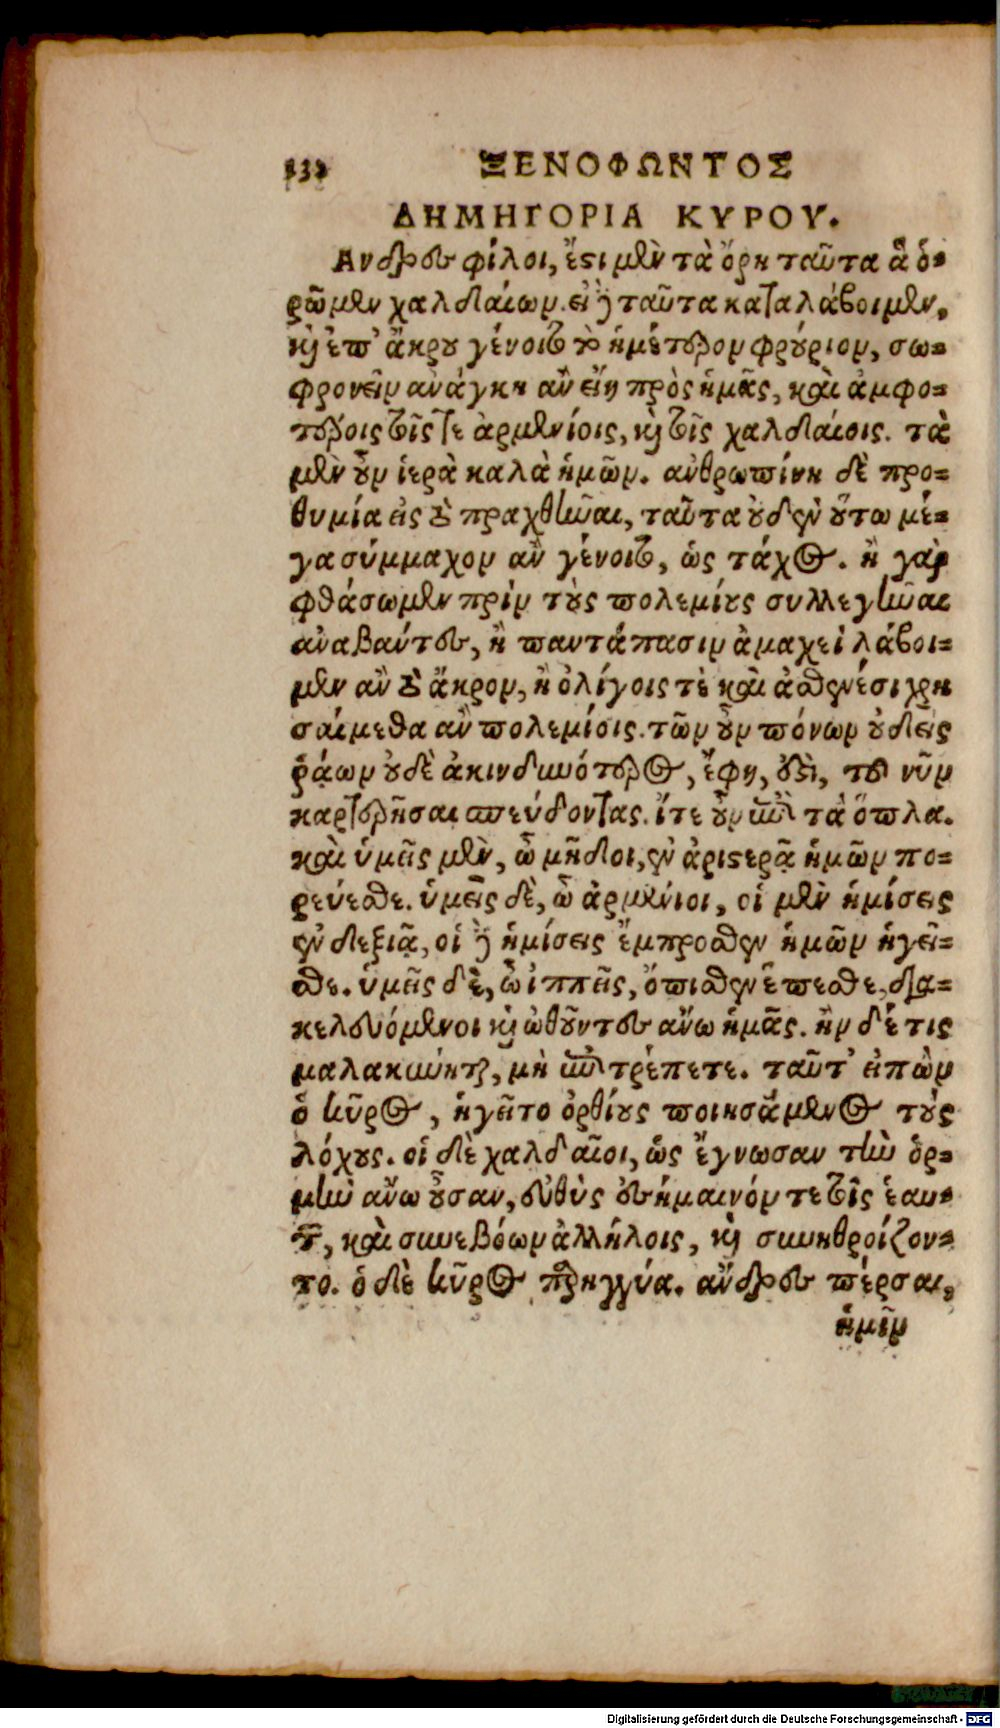 232 ΞΕΝΟΦΩΝΤΟΣ
ΔΗΜΗΓΟΡΙΑ ΚΥΡΟΥ.
Ανδρες φίλοι, ἔστι μὲν τὰ ὄρη ταῦτα ἃ ὁ-
ρῶμεν χαλδαίων. εἰ δὲ ταῦτα καταλάβοιμεν,
καὶ ἐπ' ἄκρου γένοιτο τὸ ἡμέτερον φρούριον, σω-
φρονεῖν ἀνάγκη ἂν εἴη πρὸς ἡμᾶς, καὶ ἀμφο-
τέροις τοῖς τε ἀρμενίοις, καὶ τοῖς χαλδαίοις. τὰ
μὲν οὖν ἱερὰ καλὰ ἡμῶν. ἀνθρωπίνη δὲ προ-
θυμία εἰς τὸ πραχθῆναι, ταῦτα οὐδὲν οὕτω μέ-
γα σύμμαχον ἂν γένοιτο, ὡς τάχος. ἢ γὰρ
φθάσωμεν πρὶν τοὺς πολεμίους συλλεγῆναι
ἀναβάντες, ἢ παντάπασιν ἀμαχεὶ λάβοι-
μεν ἂν τὸ ἄκρον, ἢ ὀλίγοις τὲ καὶ ἀσθενέσι χρη
σαίμεθα ἂν πολεμίοις. τῶν οὖν πόνων οὐδεὶς
ῥᾴων οὐδὲ ἀκινδυνότερος, ἔφη, ἐστὶ, τοῦ νῦν
καρτερῆσαι σπεύδοντας. ἴτε οὖν ἐπὶ τὰ ὅπλα.
καὶ ὑμεῖς μὲν, ὦ μῆδοι, ἐν ἀριστερᾷ ἡμῶν πο-
ρεύεσθε. ὑμεῖς δὲ, ὦ ἀρμένιοι, οἱ μὲν ἡμίσεις
ἐν δεξιᾷ, οἱ δὲ ἡμίσεις ἔμπροσθεν ἡμῶν ἡγεῖ-
σθε. ὑμεῖς δὲ, ὦ ἱππεῖς, ὄπισθεν ἕπεσθε, δια-
κελευόμενοι καὶ ὠθοῦντες ἄνω ἡμᾶς. ἢν δέ τις
μαλακύνηται, μὴ ἐπιτρέπετε. ταῦτ' εἰπὼν
ὁ κῦρος, ἡγεῖτο ὀρθίους ποιησάμενος τοὺς
λόχους. οἱ δὲ χαλδαῖοι, ὡς ἔγνωσαν τὴν ὁρ-
μὴν ἄνω οὖσαν, εὐθὺς ἐσήμαινόν τε τοῖς ἑαυ-
τῶν, καὶ συνεβόων ἀλλήλοις, καὶ συνηθροίζον-
το. ὁ δὲ κῦρος παρηγγύα. ἄνδρες πέρσαι,
ἡμῖν
Digitalisierung gefördert durch die Deutsche Forschungsgemeinschaft - DFG